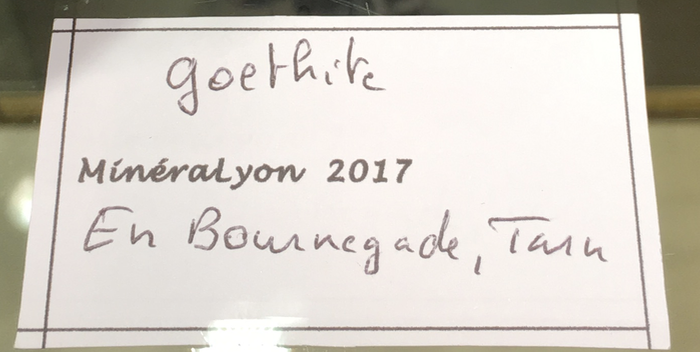 goethite
MinéraLyon 2017
En Bournegade, Tarn